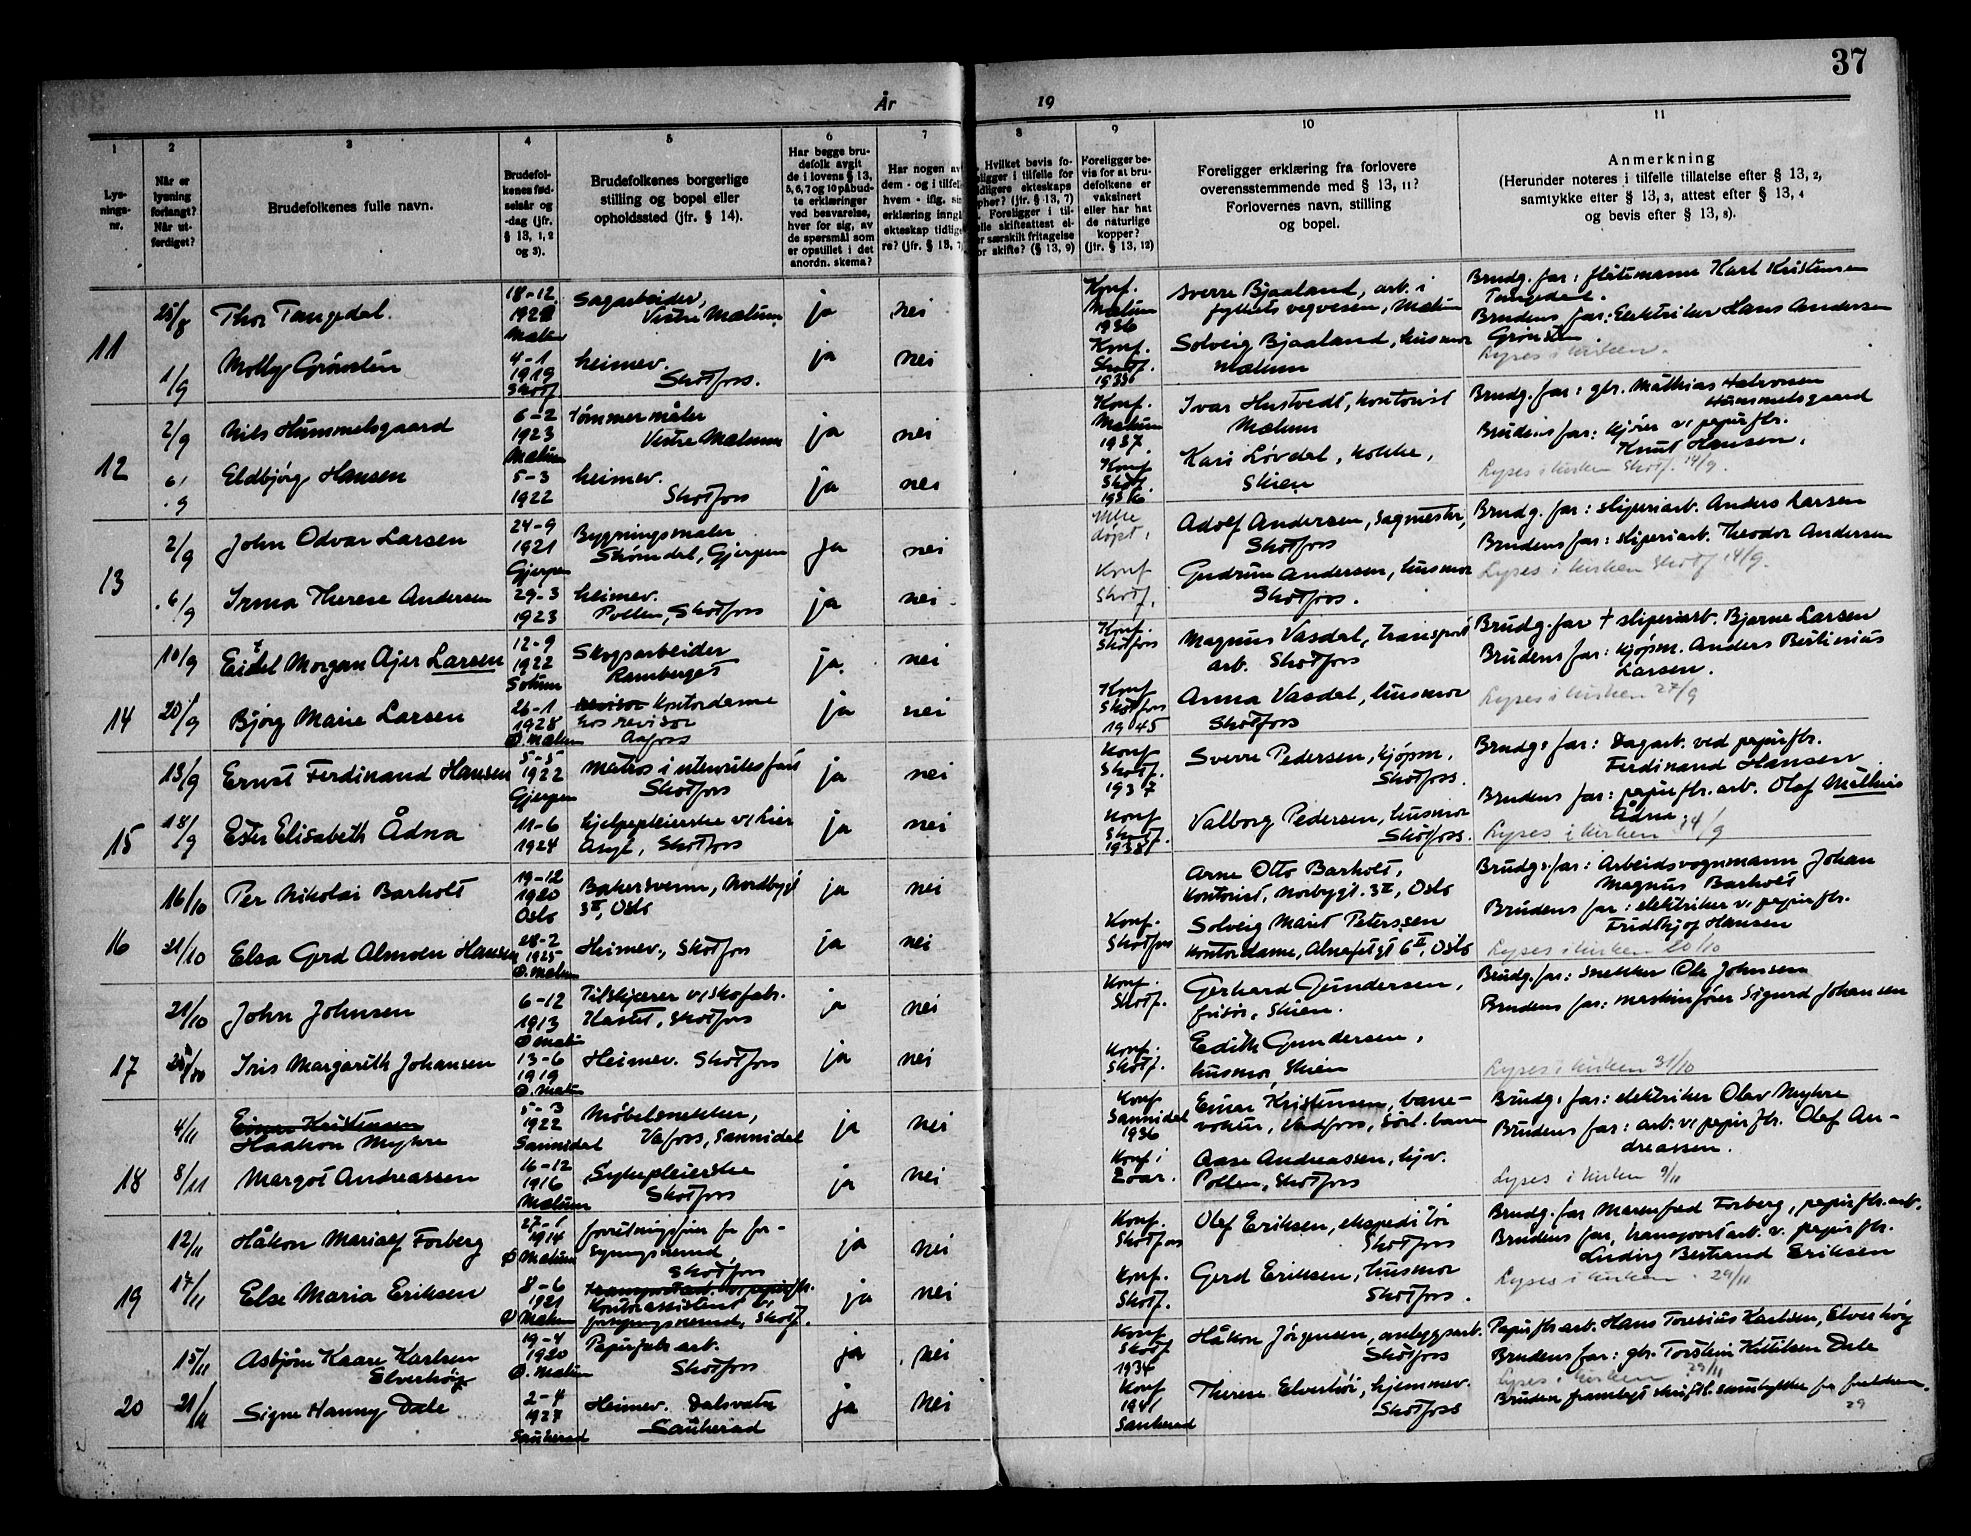 37
År 19
1 2 3 4 5 6 7 8 9 10 11
Lys-
nings-
nr.
Når er
lysning
forlangt?
Når ut-
ferdiget?
Brudefolkenes fulle navn.
Brudefol-
kenes fød-
selsår og
-dag (jfr.
§ 13, 1, 2
og 3).
Brudefolkenes borgerlige
stilling og bopel eller
opholdssted (jfr. § 14).
Har begge bru-
defolk avgit
de i lovens § 13,
5, 6, 7 og 10 påbud-
te erklæringer
ved besvarelse,
hver for sig, av
de spørsmål som
er opstillet i det
anordn. skema?
Har nogen av
dem - og i tilfelle
hvem - iflg. sin
erklæring inngått
ekteskap tidlige-
re? (jfr. § 13, 7)
Hvilket bevis fo-
religger i tilfelle for
tidligere ekteskaps
opher? (jfr. § 13, 7)
Foreligger i til-
felle skifteattest el-
ler særskilt fritagelse
for skifte? (§ 13, 9)
Foreligger be-
vis for at bru-
defolkene er
vaksinert
eller har hat
de naturlige
kopper?
(jfr. § 13, 12)
Foreligger erklæring fra forlovere
overensstemmende med § 13, 11?
Forlovernes navn, stilling
og bopel.
Anmerkning
(Herunder noteres i tilfelle tillatelse efter § 13, 2,
samtykke efter § 13, 3, attest efter § 13, 4
og bevis efter § 13, 8).
11
25/8 Thor Tangedal. 18-12 Sagarbeider, Vestre Mælum ja nei
Konf. Mælum 1936 Sverre Bjaaland, arb. i fylkets vegvesen, Mælum
Brudg. far: fløtemann Karl Kristensen Tangedal.
1/9 Molly Grønsten 4-1 1919 Skotf heimev. Skotfoss. ja nei
Konf. Skotf. Solveig Bjaaland, husmor Mælum
Brudens far: Elektriker Hans Andersen Grønsten
Lyses i kirken.
12
2/9 Nils Hummelsgaard 6-2 1923 Mælum Tømmermåler Vestre Mælum ja nei
Konf. Mælum 1937 Ivar Hustvedt, kontorist Mælum
Brudg. far: gbr. Mathias Halvorsen Hummelsgaard
6/9 Eldbjørg Hansen 5-3 1922 heimev. Skotfoss ja nei
Konf Skotf. 1936 Kari Løvdal, kokke, Skien
Brudens far: kjører v/papirfbr. Knut Hansen.
Lyses i kirken Skotf. 14/9.
13
2/9 John Odvar Larsen 24-9 1921 Gjerpen Bygningsmaler Strømdal, Gjerpen ja nei
Ikke døpt. Adolf Andersen, sagmester, Skotfoss
Brudg. far: sliperiarb. Anders Larsen
6/9 Irma Therese Andersen 29-3 1923 heimev. Pollen, Skotfoss ja nei
Konf Skotf. Gudrun Andersen, husmor Skotfoss.
Brudens far: sliperiarb. Theodor Andersen
Lyses i kirken Skotf 14/9.
14
10/9 Eidel Morgan Ajer Larsen 12-9 1922 Solum Skogsarbeider Ramberget ja. nei
Konf. Skotfoss Magnus Vasdal, transport arb. Skotfoss
Brudg. far + sliperiarb. Bjarne Larsen
20/9 Bjørg Marie Larsen 26-1 1928 Ø. Mælum revisor kontordame hos revisor Aafoss ja nei
Konf Skotfoss 1945 Anna Vasdal, husmor Skotfoss
Brudens far: kjøpm. Anders Bertinius Larsen.
Lyses i kirken 27/9
15
13/9 Ernst Ferdinand Hansen 5-5 1922 Gjerpen Matros i utenriksfart Skotfoss ja nei
Konf Skotf. 1937 Sverre Pedersen, kjøpm. Skotfoss.
Brudg. far: Dagarb. ved papirfbr. Ferdinand Hansen
18/9 Ester Elisabeth Ådna 11-6 1924 hjelpepleierske v/Lier Asyl, Skotfoss ja nei
Konf Skotf. Valborg Pedersen, husmor Skotfoss.
Brudens far: papirfbr. arb. Olaf Mathias Ådna
Lyses i kirken 14/9
16
16/10 Per Nikolai Barholt 19-12 1920 Oslo Bakersvenn, Nordbygt 3 II, Oslo ja nei
Arne Otto Barholt, Kontorist, Norbygt. 3 II, Oslo
Brudg. far: Arbeidsvognmann Johan Magnus Barholt
21/10 Elsa Gerd Almoen Hansen 28-2 1925 Ø. Mælum Heimev., Skotfoss ja nei
Konf. Skotfoss Solveig Marit Peterssen kontordame, 6 II, Oslo
Brudens far: elektriker v. papirfbr. Fridthjof Hansen
Lyses i kirken 20/10
17
21/10 John Johnsen 6-12 1913 Ø Mælum Tilskjærer v/skofabr. Skotfoss ja nei
Konf. Skotf. Gerhard Gundersen, frisør, Skien.
Brudg. far: snekker Ole Johnsen
Iris Margarith Johansen 13-6 1919 Ø. Mælum Heimev. Skotfoss ja nei
Konf. Skotf. Edith Gundersen, husmor, Skien
Brudens far: maskinfører Sigurd Johansen
Lyses i kirken 31/10
18
4/11 Einar Kristensen Haakon Myhre 5-3 1922 Sannidal Møbelsnekker, Vafoss, Sannidal ja nei
Konf Sannidal 1936 Einar Kristensen, bane- vokter, Vadfoss, Sørl. banen
Brudg. far: elektriker Olav Myhre
8/11 Margot Andreassen 16-12 1916 Mælum Sykepleierske Skotfoss ja nei
Konf i Aase Andreassen, hjv. Pollen, Skotfoss
Brudens far: arb. v/papirfbr. Olef An-
dreassen.
Lyses i kirken 9/11
19
12/11 Håkon Forberg 27-1 1914 Ø Mælum forretningsfører for for-
syningsnemnd, Skotfoss ja nei
Konf. Skotfoss Olef Eriksen, ekspeditør Skotfoss
Brudg. far Forberg, papirfbr. arb.
17/11 Else Maria Eriksen 8-6 1921 Ø Mælum Kontorassistent v. forsyningsnemnd, Skotf. ja nei
Konf. Skotf. Gerd Eriksen, husmor Skotfoss.
Brudens far, transportarb. v. papirfbr. Ludvig Bertrand Eriksen
Lyses i kirken 29/11
20
15/11 Asbjørn Kaare Karlsen Elverhøy 19-4 1920 Ø. Mælum Papirfabr. arb. Skotfoss ja nei
Konf Skotf 1934 Håkon Jørgensen, anleggsarb. Skotfoss
Papirfbr arb. Hans Toresius Karlsen, Elverhøy
21/11 Signe Hanny Dale 2-4 1927 Sauherad Heimev. Dalsvatn Sauherad ja nei
Konf 1941 Sauherad Therese Elverhøi, hjemmev. Skotfoss
Brudens far: gbr. Torstein Kittilsen Dale
Lyses i kirken 29/11
Bruden framlagt skriftl. samtykke fra foreldrene.
29